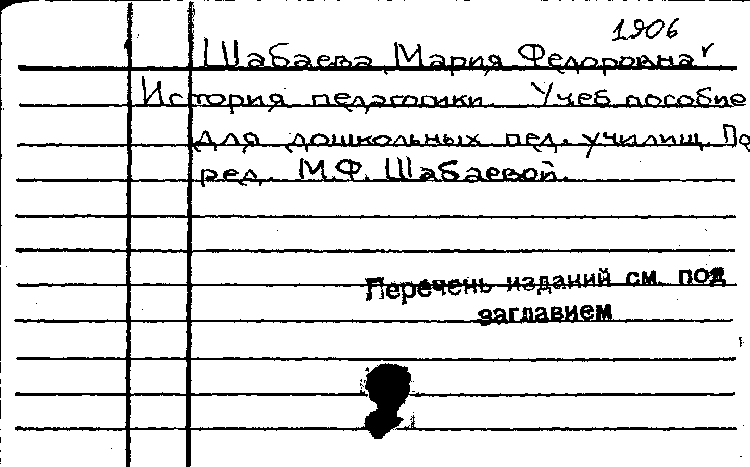 1906
Шабаева Мария Федоровна
История педагогики Учеб пособие
для дошкольных пед. училищ. По
ред. М.Ф. Шабаевой.
Перечень изданий см. под
заглавием